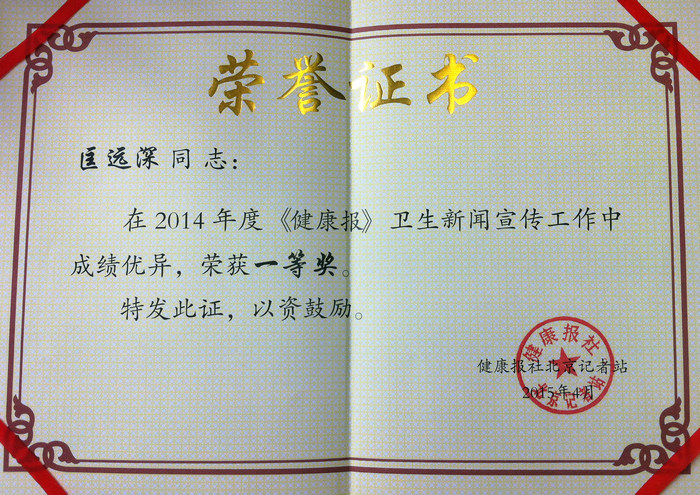 荣誉证书
匡远深同志：
在2014年度《健康报》卫生新闻宣传工作中
成绩优异，荣获一等奖。
特发此证，以资鼓励。
健康报社
健康报社北京记者站
2015年4月
北京记者站